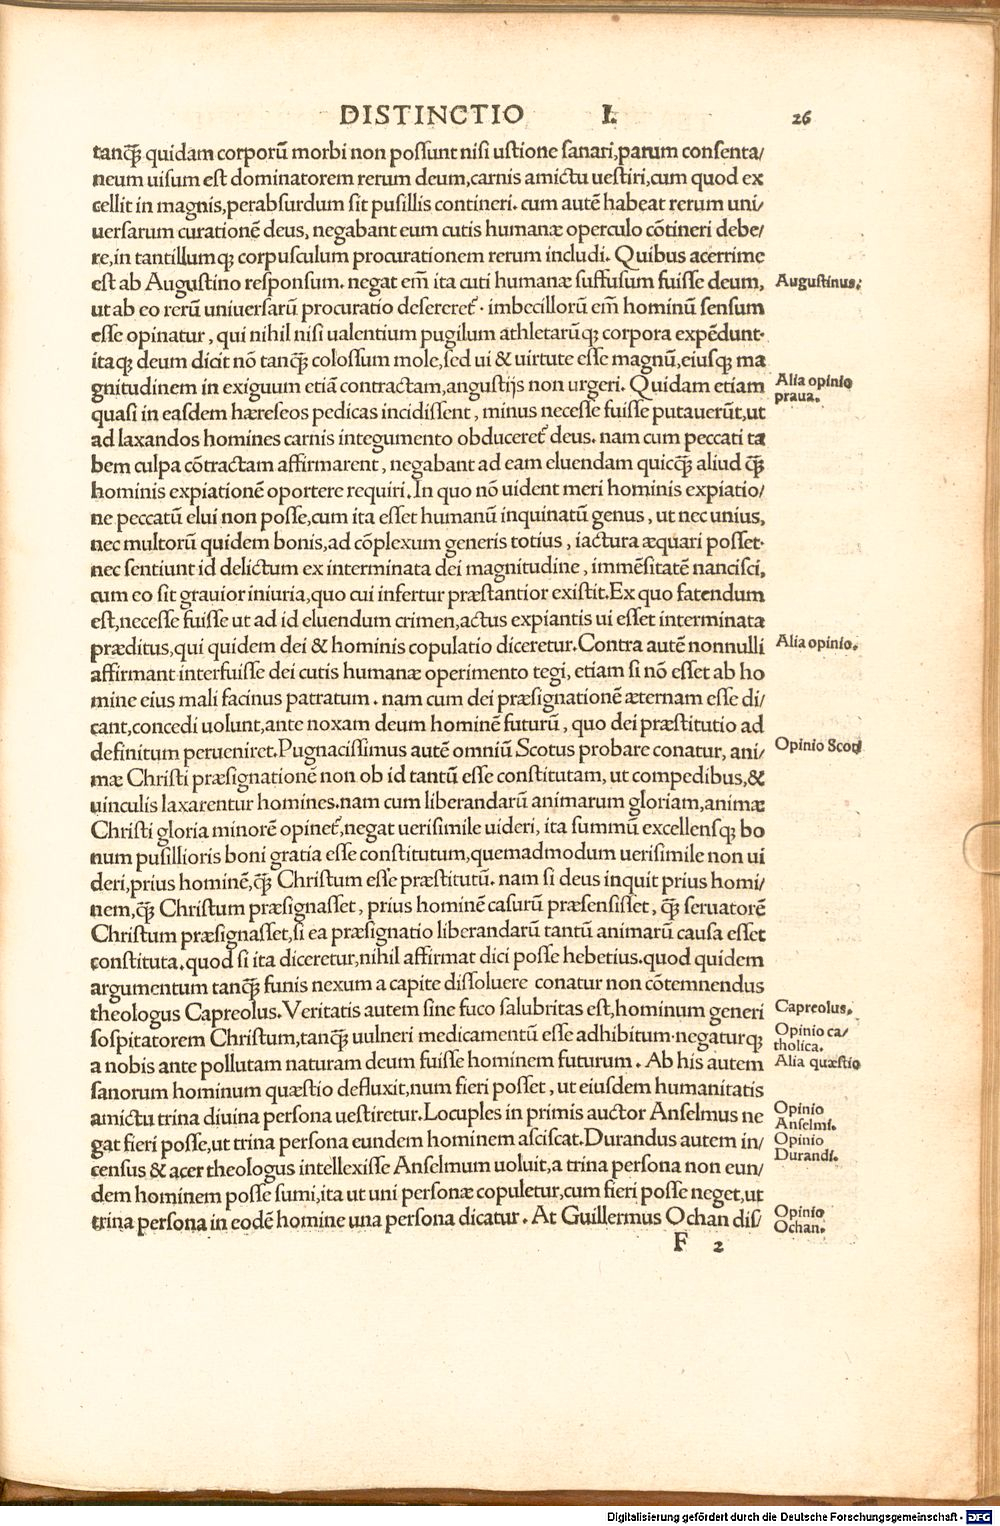 DISTINCTIO I. 26
tanq̃ quidam corporũ morbi non possunt nisi ustione sanari,parum consenta/
neum uisum est dominatorem rerum deum,carnis amictu uestiri,cum quod ex
cellit in magnis,perabsurdum sit pusillis contineri. cum autẽ habeat rerum uni/
uersarum curationẽ deus, negabant eum cutis humanæ operculo cõtineri debe/
re,in tantillumq; corpusculum procurationem rerum includi. Quibus acerrime
est ab Augustino responsum. negat em̃ ita cuti humanæ suffusum fuisse deum,
Augustinus.
ut ab eo rerũ uniuersarũ procuratio desereret᷑. imbecillorũ em̃ hominũ sensum
esse opinatur, qui nihil nisi ualentium pugilum athletarũq; corpora expẽdunt.
itaq; deum dicit nõ tanq̃ colossum mole,sed ui & uirtute esse magnũ,eiusq; ma
gnitudinem in exiguum etiã contractam,angustijs non urgeri. Quidam etiam
Alia opinio
praua.
quasi in easdem hæreseos pedicas incidissent, minus necesse fuisse putauerũt,ut
ad laxandos homines carnis integumento obduceret᷑ deus. nam cum peccati ta
bem culpa cõtractam affirmarent, negabant ad eam eluendam quicq̃ aliud q̃
hominis expiationẽ oportere requiri. In quo nõ uident meri hominis expiatio/
ne peccatũ elui non posse,cum ita esset humanũ inquinatũ genus, ut nec unius,
nec multorũ quidem bonis,ad cõplexum generis totius, iactura æquari posset.
nec sentiunt id delictum ex interminata dei magnitudine, immẽsitatẽ nancisci,
cum eo sit grauior iniuria,quo cui infertur præstantior existit.Ex quo fatendum
est,necesse fuisse ut ad id eluendum crimen,actus expiantis ui esset interminata
præditus,qui quidem dei & hominis copulatio diceretur.Contra autẽ nonnulli
Alia opinio.
affirmant interfuisse dei cutis humanæ operimento tegi, etiam si nõ esset ab ho
mine eius mali facinus patratum. nam cum dei præsignationẽ æternam esse di/
cant,concedi uolunt,ante noxam deum hominẽ futurũ, quo dei præstitutio ad
definitum perueniret.Pugnacissimus autẽ omniũ Scotus probare conatur, ani/
Opinio Scoti
mæ Christi præsignationẽ non ob id tantũ esse constitutam, ut compedibus,&
uinculis laxarentur homines.nam cum liberandarũ animarum gloriam,animæ
Christi gloria minorẽ opinet᷑,negat uerisimile uideri, ita summũ excellensq; bo
num pusillioris boni gratia esse constitutum,quemadmodum uerisimile non ui
deri,prius hominẽ,q̃ Christum esse præstitutũ. nam si deus inquit prius homi/
nem,q̃ Christum præsignasset, prius hominẽ casurũ præsensisset, q̃ seruatorẽ
Christum præsignasset,si ea præsignatio liberandarũ tantũ animarũ causa esset
constituta.quod si ita diceretur,nihil affirmat dici posse hebetius.quod quidem
argumentum tanq̃ funis nexum a capite dissoluere conatur non cõtemnendus
theologus Capreolus.Veritatis autem sine fuco salubritas est,hominum generi
Capreolus.
sospitatorem Christum,tanq̃ uulneri medicamentũ esse adhibitum.negaturq;
Opinio ca/
tholica.
a nobis ante pollutam naturam deum fuisse hominem futurum. Ab his autem
Alia quæstio
sanorum hominum quæstio defluxit,num fieri posset, ut eiusdem humanitatis
amictu trina diuina persona uestiretur.Locuples in primis auctor Anselmus ne
Opinio
Anselmi.
gat fieri posse,ut trina persona eundem hominem asciscat.Durandus autem in/
Opinio
Durandi.
census & acer theologus intellexisse Anselmum uoluit,a trina persona non eun/
dem hominem posse sumi,ita ut uni personæ copuletur,cum fieri posse neget,ut
trina persona in eodẽ homine una persona dicatur. At Guillermus Ochan dis/
Opinio
Ochan.
F 2
Digitalisierung gefördert durch die Deutsche Forschungsgemeinschaft - DFG